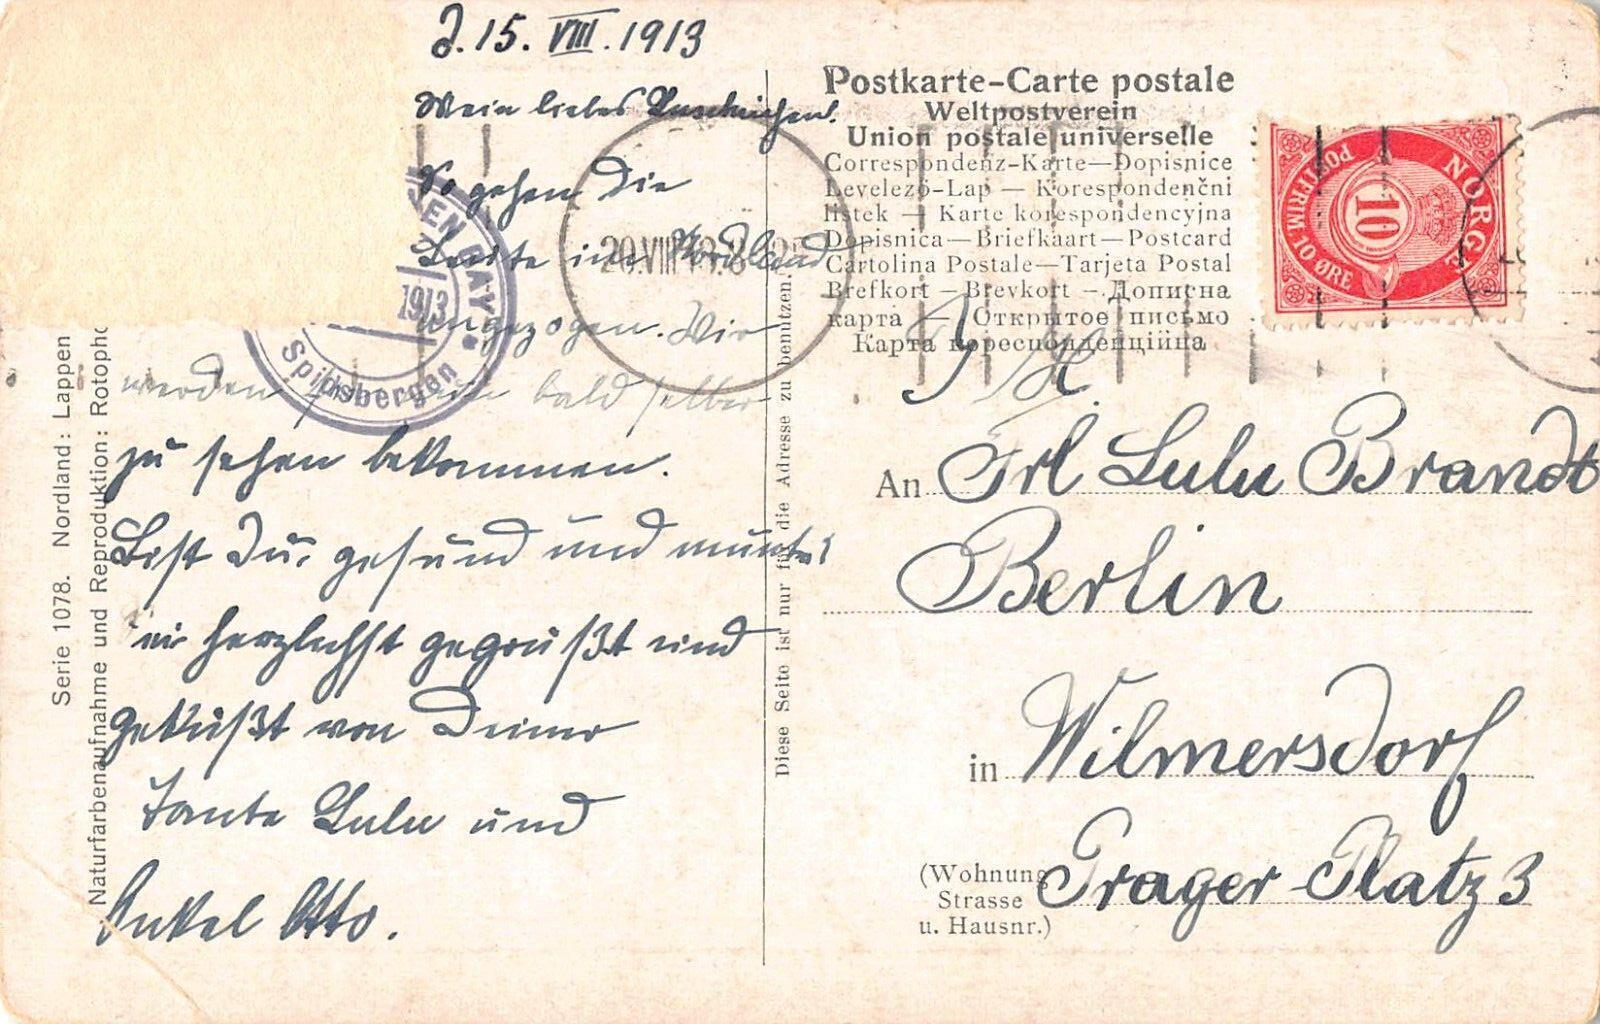 J. 15. VIII. 1913
Mein liebes
So gehen die
Leute im Nordland
angezogen. Wir
werden bald selber
zu sehen bekommen.
Bist Du gesund und munter?
herzlichst gegrüßt und
geküßt von Deiner
Tante Lulu und
Onkel Otto.
EN BAY
1913
Spidsbergen
20.VIII 13. 8
Serie 1078. Nordland: Lappen
Naturfarbenaufnahme und Reproduktion: Rotopho
Diese Seite ist nur für die Adresse zu benutzen.
Postkarte-Carte postale
Weltpostverein
Union postale universelle
Correspondenz-Karte—Dopisnice
Levelező-Lap — Korespondenční
listek — Karte korespondencyjna
Dopisnica—Briefkaart—Postcard
Cartolina Postale—Tarjeta Postal
Brefkort — Brevkort — Дописна
карта — Открытое письмо
Карта кореспонденційна
NORGE
POSTFRIM. 10 ØRE
10
An Frl Lulu Brandt
Berlin
in Wilmersdorf
(Wohnung Prager Platz 3
Strasse
u. Hausnr.)